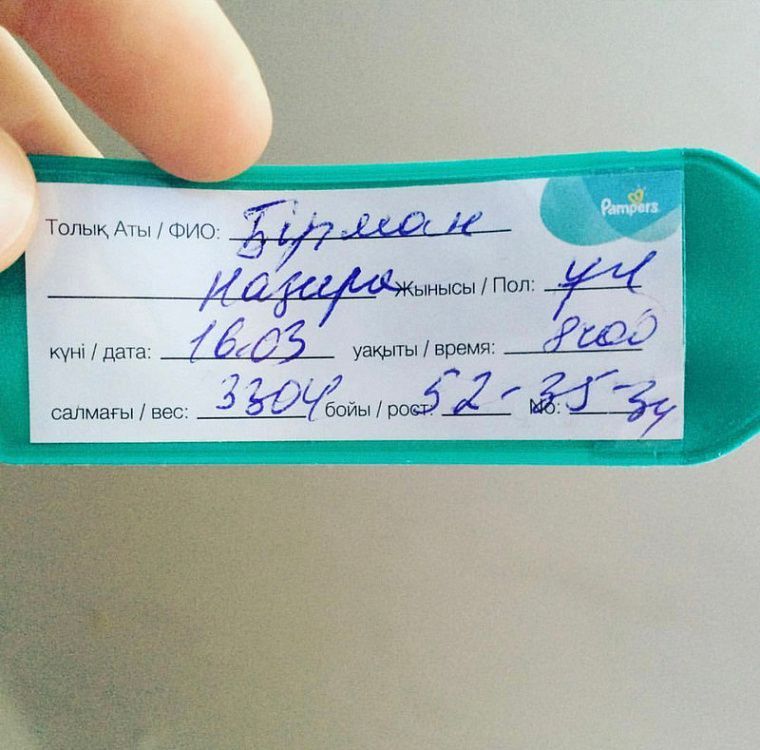 Pampers
Толық Аты / ФИО: Бірман
Назира Жынысы / Пол: ұл
күні / дата: 16.03 уақыты / время: 8ч00
салмағы / вес: 3304 бойы / рост: 52-35-34 No: